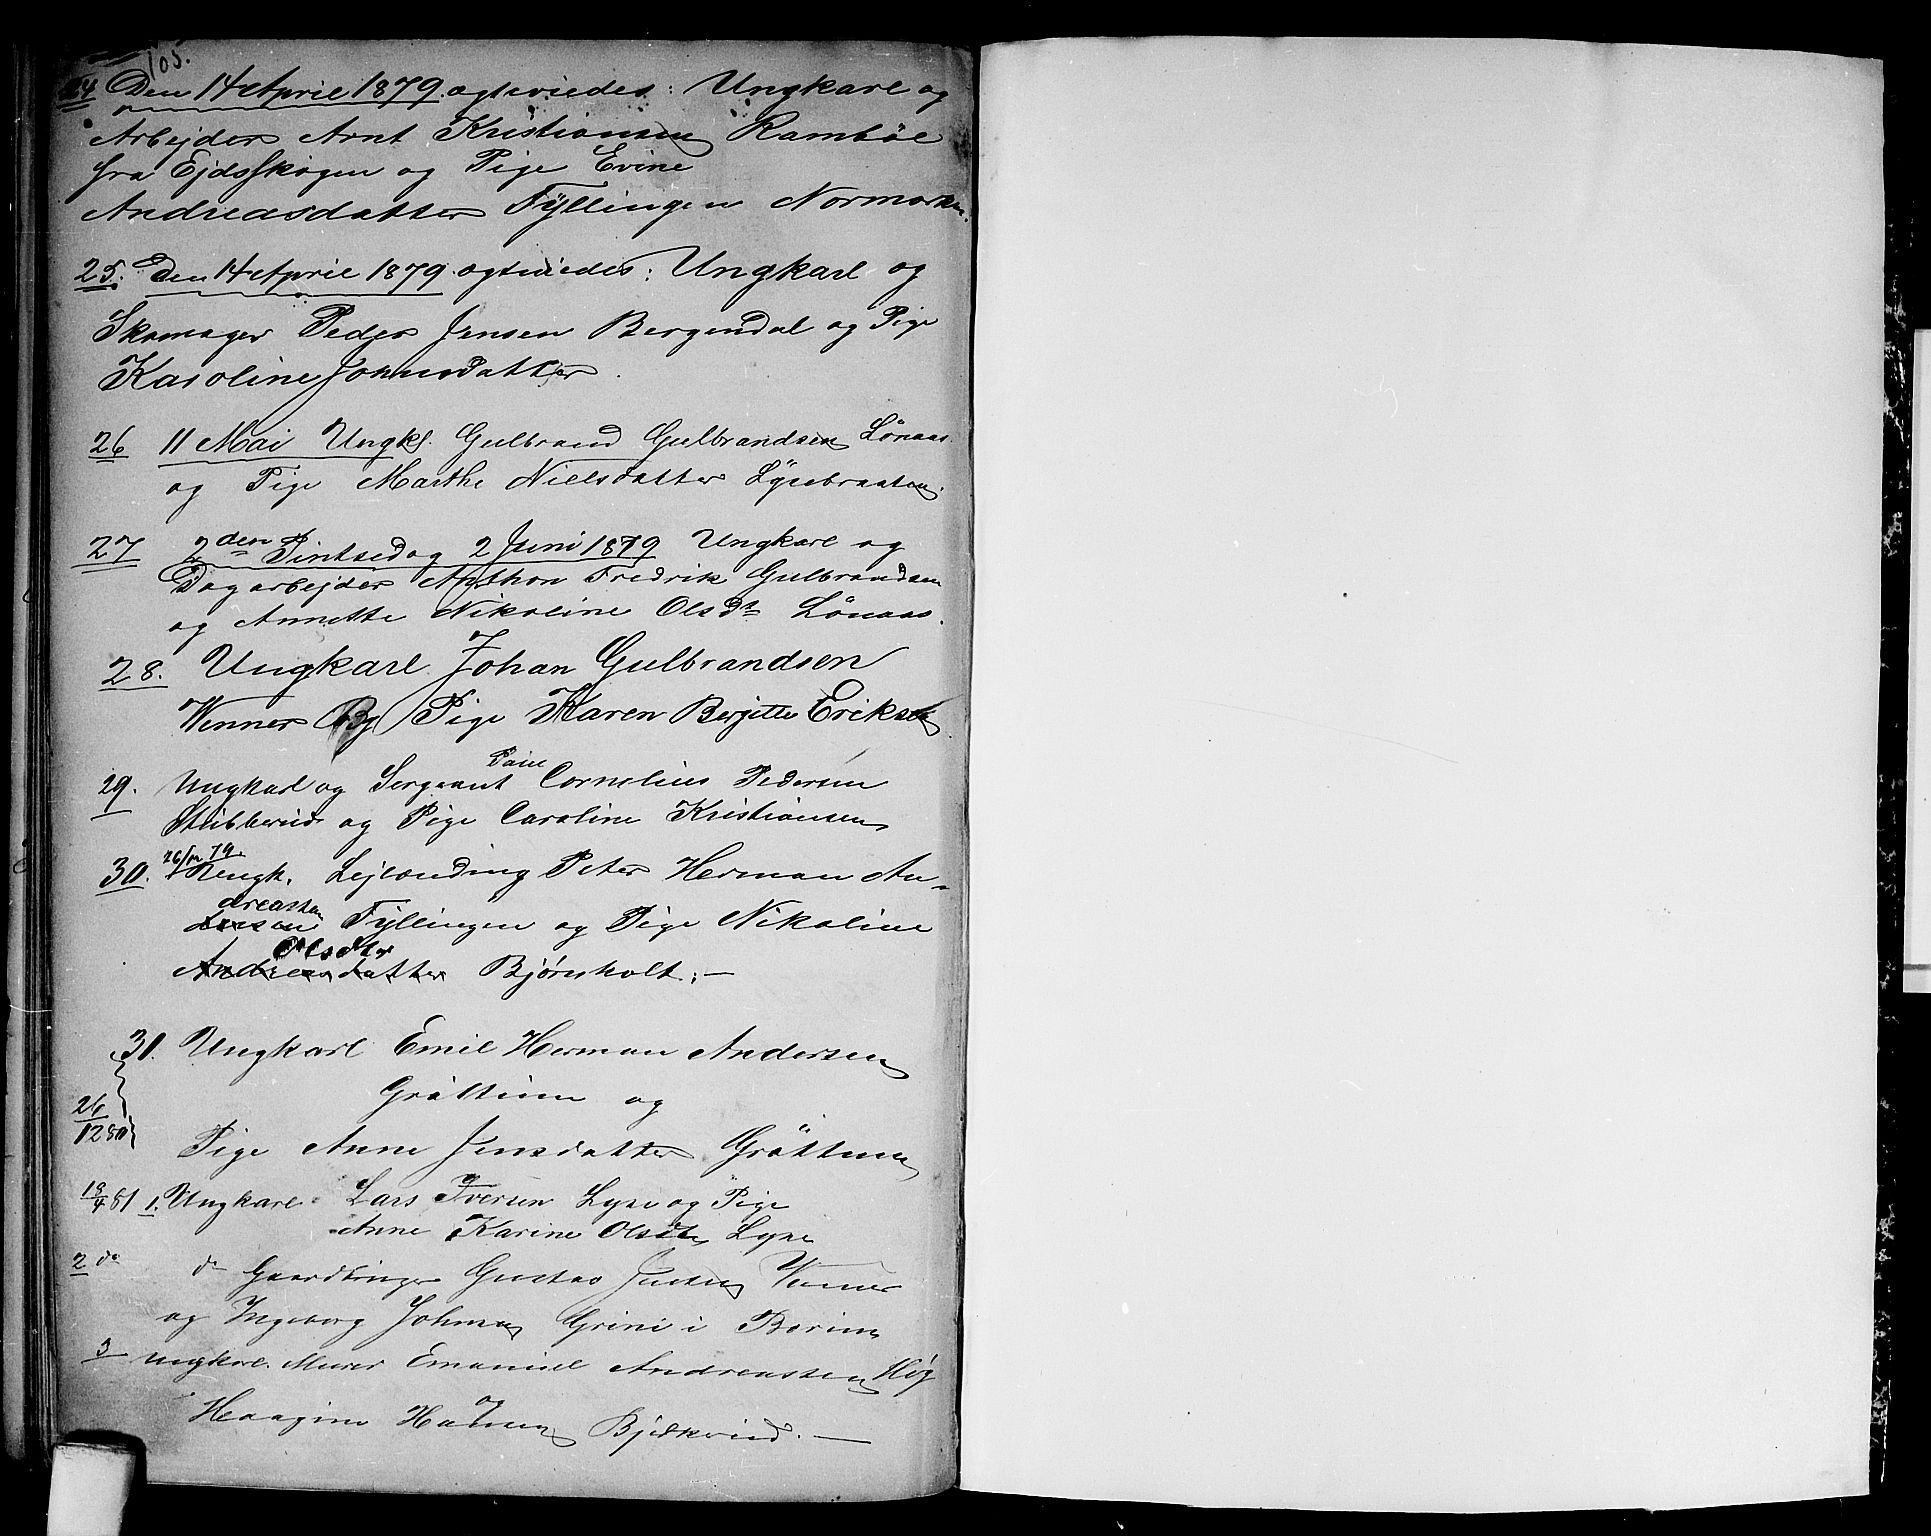 105.
24 Den 14 April 1879 ægteviedes: Ungkarl og
Arbejder Arnt Kristiansen Ramböl
fra Ejdsskogen og Pige Evine
Andreasdatter Fyllingen Normarken.
25. Den 14 April 1879 ægteviedes: Ungkarl og
Skomager Peder Jensen Bergendal og Pige
Karoline Johnsdatter.
26 11 Mai Ungkl. Gulbrand Gulbrandsen Lönaas
og Pige Marthe Nielsdatter Lysebraaten.
27 2den Pintsedag 2 Juni 1879 Ungkarl og
Dagarbejder Anthon Fredrik Gulbrandsen
og Annette Nikoline Olsdt Lönaas.
28. Ungkarl Johan Gulbrandsen
Wenner Og Pige Karen Bergitte Eriksd
29. Ungkarl og Sergeant Cornelius Pedersen
Stubberud og Pige Caroline Kristiansen
26/12 79.
30. Ungk. Lejlænding Peter Herman An-
dreassen
Larsen Fyllingen og Pige Nikoline
Olsdtr
Andreasdatter Bjørnholt. —
31. Ungkarl Emil Herman Andersen
Gröttum og
26/12 80
Pige Anne Jensdatter Gröttum
18/4 81 1. Ungkarl Lars Iversen Lyse og Pige
Anne Karine Olsdt Lyse
2 do do Gaardbruger Gustav Jensen Venner
og Ingeborg Johnsen Grini i Bærum
3 Ungkarl Murer Emanuel Andreassen Høy
og
Haagine Hansen Bjerkerud. —